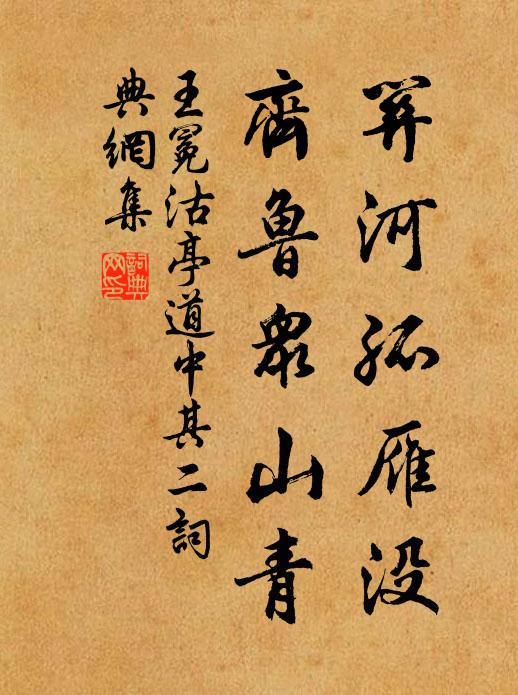 荓河孤雁没
齊魯衆山青
王冕沽亭道中其二詞
典網集
詞典網印